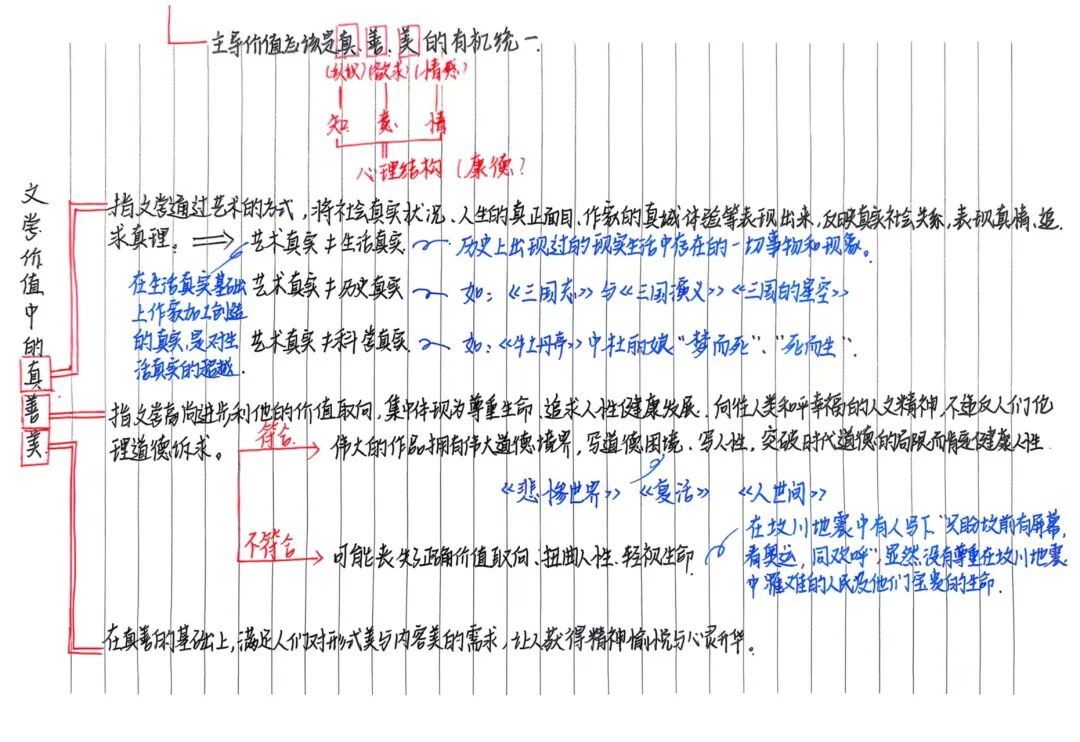 主导价值应该是真、善、美的有机统一.
(认识) (欲求) (情感)
知 意 情
心理结构 (康德)
文学价值中的真善美
指文学通过艺术的方式，将社会真实状况、人生的真正面目、作家的真诚体验等表现出来，反映真实社会关系，表现真情、追
求真理。
艺术真实≠生活真实
历史上出现过的现实生活中存在的一切事物和现象。
在生活真实基础
上作家加工创造
的真实，是对生
活真实的超越.
艺术真实≠历史真实
如：《三国志》与《三国演义》《三国的星空》
艺术真实≠科学真实
如：《牡丹亭》中杜丽娘"梦而死"、"死而生".
指文学高尚进步利他的价值取向，集中体现为尊重生命、追求人性健康发展、向往人类和平幸福的人文精神，不违反人们伦
理道德诉求。
符合
伟大的作品拥有伟大道德境界，写道德困境、写人性，突破时代道德的局限而肯定健康人性.
《悲惨世界》 《复活》 《人世间》
不符合
可能丧失正确价值取向、扭曲人性、轻视生命
在汶川地震中有人写下"只盼坟前有屏幕，
看奥运，同欢呼"；显然没有尊重在汶川地震
中罹难的人民及他们宝贵的生命.
在真善的基础上，满足人们对形式美与内容美的需求，让人获得精神愉悦与心灵升华。